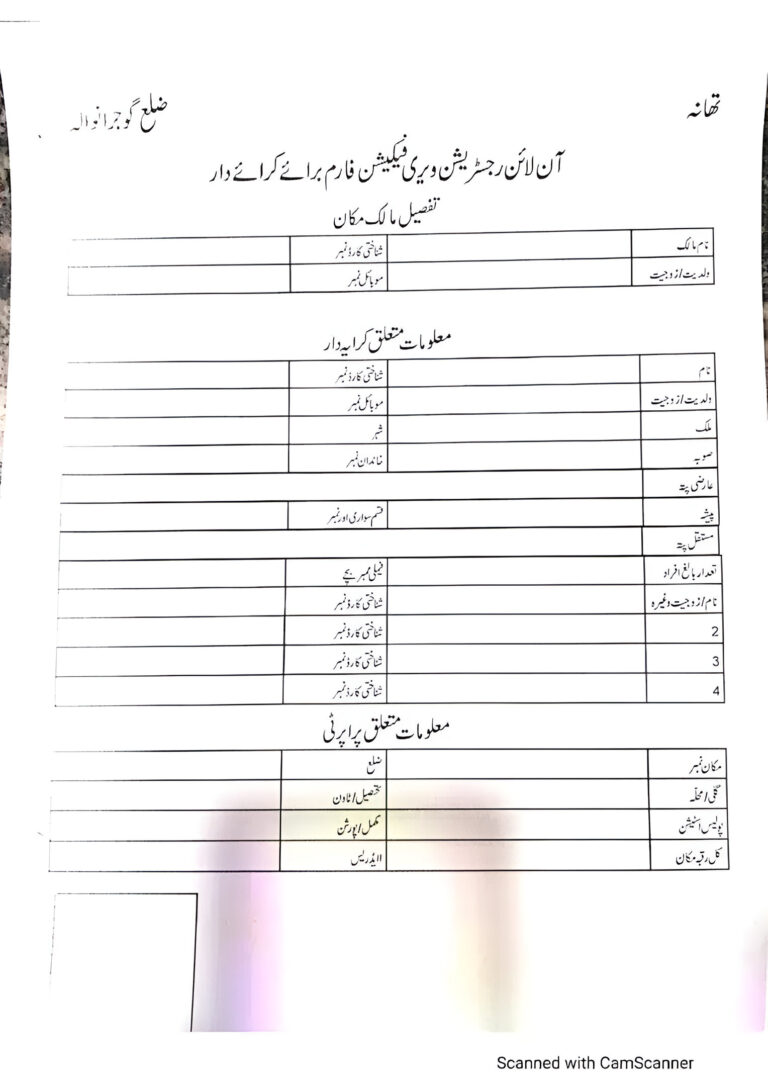 تھانہ ضلع گوجرانوالہ
آن لائن رجسٹریشن ویری فیکیشن فارم برائے کرائے دار
تفصیل مالک مکان
نام مالک شناختی کارڈ نمبر
ولدیت/زوجیت موبائل نمبر
معلومات متعلق کرایہ دار
نام شناختی کارڈ نمبر
ولدیت/زوجیت موبائل نمبر
ملک شہر
صوبہ خاندان نمبر
عارضی پتہ
پیشہ قسم سواری اور نمبر
مستقل پتہ
تعداد بالغ افراد فیملی ممبر بچے
نام/زوجیت وغیرہ شناختی کارڈ نمبر
2 شناختی کارڈ نمبر
3 شناختی کارڈ نمبر
4 شناختی کارڈ نمبر
معلومات متعلق پراپرٹی
مکان نمبر ضلع
گلی/محلہ تحصیل/ٹاون
پولیس اسٹیشن مکمل/پورشن
کل رقبہ مکان اایڈریس
Scanned with CamScanner